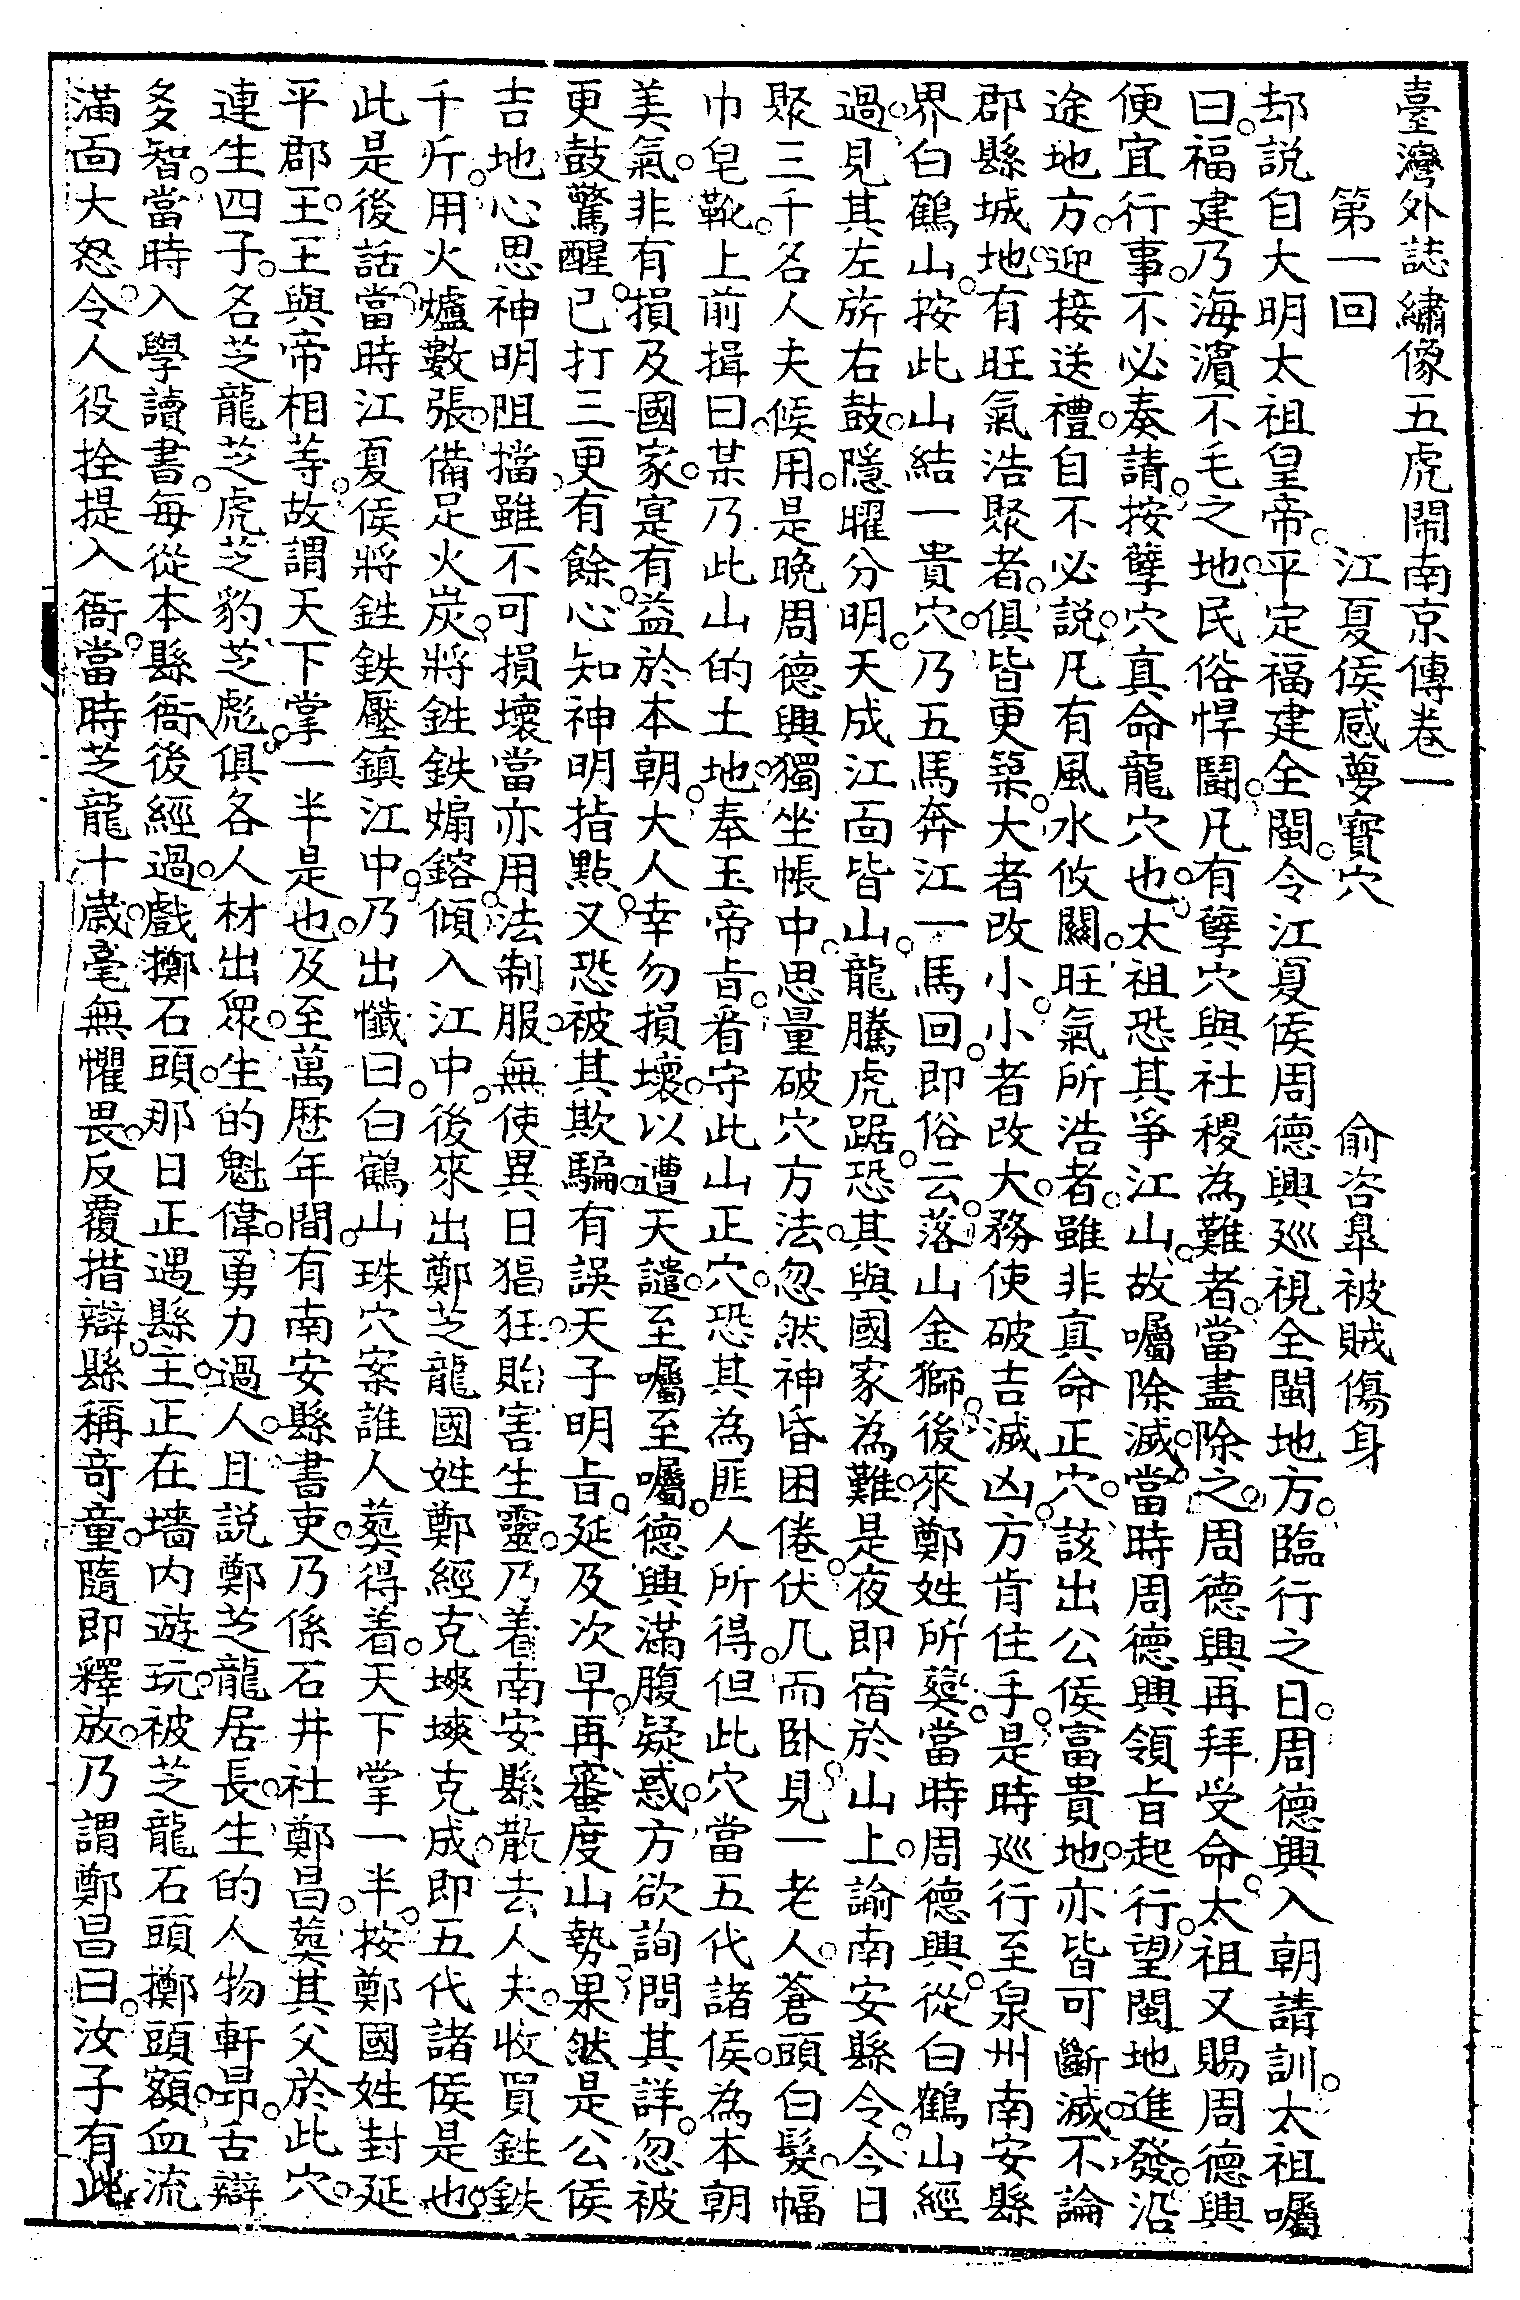 臺灣外誌繡像五虎鬧南京傳卷一
第一回　江夏侯感夢寶穴　俞咨臯被賊傷身
却說自大明太祖皇帝。平定福建全閩。令江夏侯周德興巡視全閩地方。臨行之日。周德興入朝請訓。太祖囑
曰。福建乃海濱不毛之地。民俗悍鬪。凡有孽穴與社稷為難者。當盡除之。周德興再拜受命。太祖又賜周德興
便宜行事。不必奏請。按孽穴真命龍穴也。太祖恐其爭江山。故囑除滅。當時周德興領旨起行。望閩地進發。沿
途地方。迎接送禮。自不必說。凡有風水攸關。旺氣所浩者。雖非真命正穴。該出公侯富貴地。亦皆可斷滅。不論
郡縣城地。有旺氣浩聚者。俱皆更築。大者改小。小者改大。務使破吉滅凶。方肯住手。是時巡行至泉州南安縣
界白鶴山。按此山結一貴穴。乃五馬奔江一馬回。即俗云。落山金獅。後來鄭姓所葬。當時周德興。從白鶴山經
過。見其左旂右鼓。隱曜分明。天成江面皆山。龍騰虎踞。恐其與國家為難。是夜即宿於山上。諭南安縣令。今日
聚三千名人夫候用。是晚周德興獨坐帳中。思量破穴方法。忽然神昏困倦。伏几而卧。見一老人。蒼頭白髮。幅
巾皂靴。上前揖曰。某乃此山的土地。奉玉帝旨。看守此山正穴。恐其為匪人所得。但此穴當五代諸侯。為本朝
美氣。非有損及國家。寔有益於本朝。大人幸勿損壞。以遭天譴。至囑至囑。德興滿腹疑惑。方欲詢問其詳。忽被
更鼓驚醒。已打三更有餘。心知神明指點。又恐被其欺騙。有誤天子明旨。延及次早。再審度山勢。果然是公侯
吉地。心思神明阻擋。雖不可損壞。當亦用法制服。無使異日猖狂。貽害生靈。乃着南安縣散去人夫。收買鉎鉄
千斤。用火爐數張。備足火炭。將鉎鉄煽鎔。傾入江中。後來出鄭芝龍國姓鄭經克塽。塽克成。即五代諸侯是也。
此是後話。當時江夏侯將鉎鉄壓鎮江中。乃出懺曰。白鶴山珠穴案。誰人葬得着。天下掌一半。按鄭國姓封延
平郡王。王與帝相等。故謂天下掌一半是也。及至萬曆年間。有南安縣書吏。乃係石井社鄭昌。葬其父於此穴。
連生四子。名芝龍芝虎芝豹芝彪。俱各人材出眾。生的魁偉。勇力過人。且說鄭芝龍居長。生的人物軒昂。舌辯
多智。當時入學讀書。每從本縣衙後經過。戲擲石頭。那日正遇縣主正在墻內遊玩。被芝龍石頭擲頭額。血流
滿面大怒。令人役拴提入衙。當時芝龍十歲。毫無懼畏。反覆措辯。縣稱奇童。隨即釋放。乃謂鄭昌曰。汝子有此